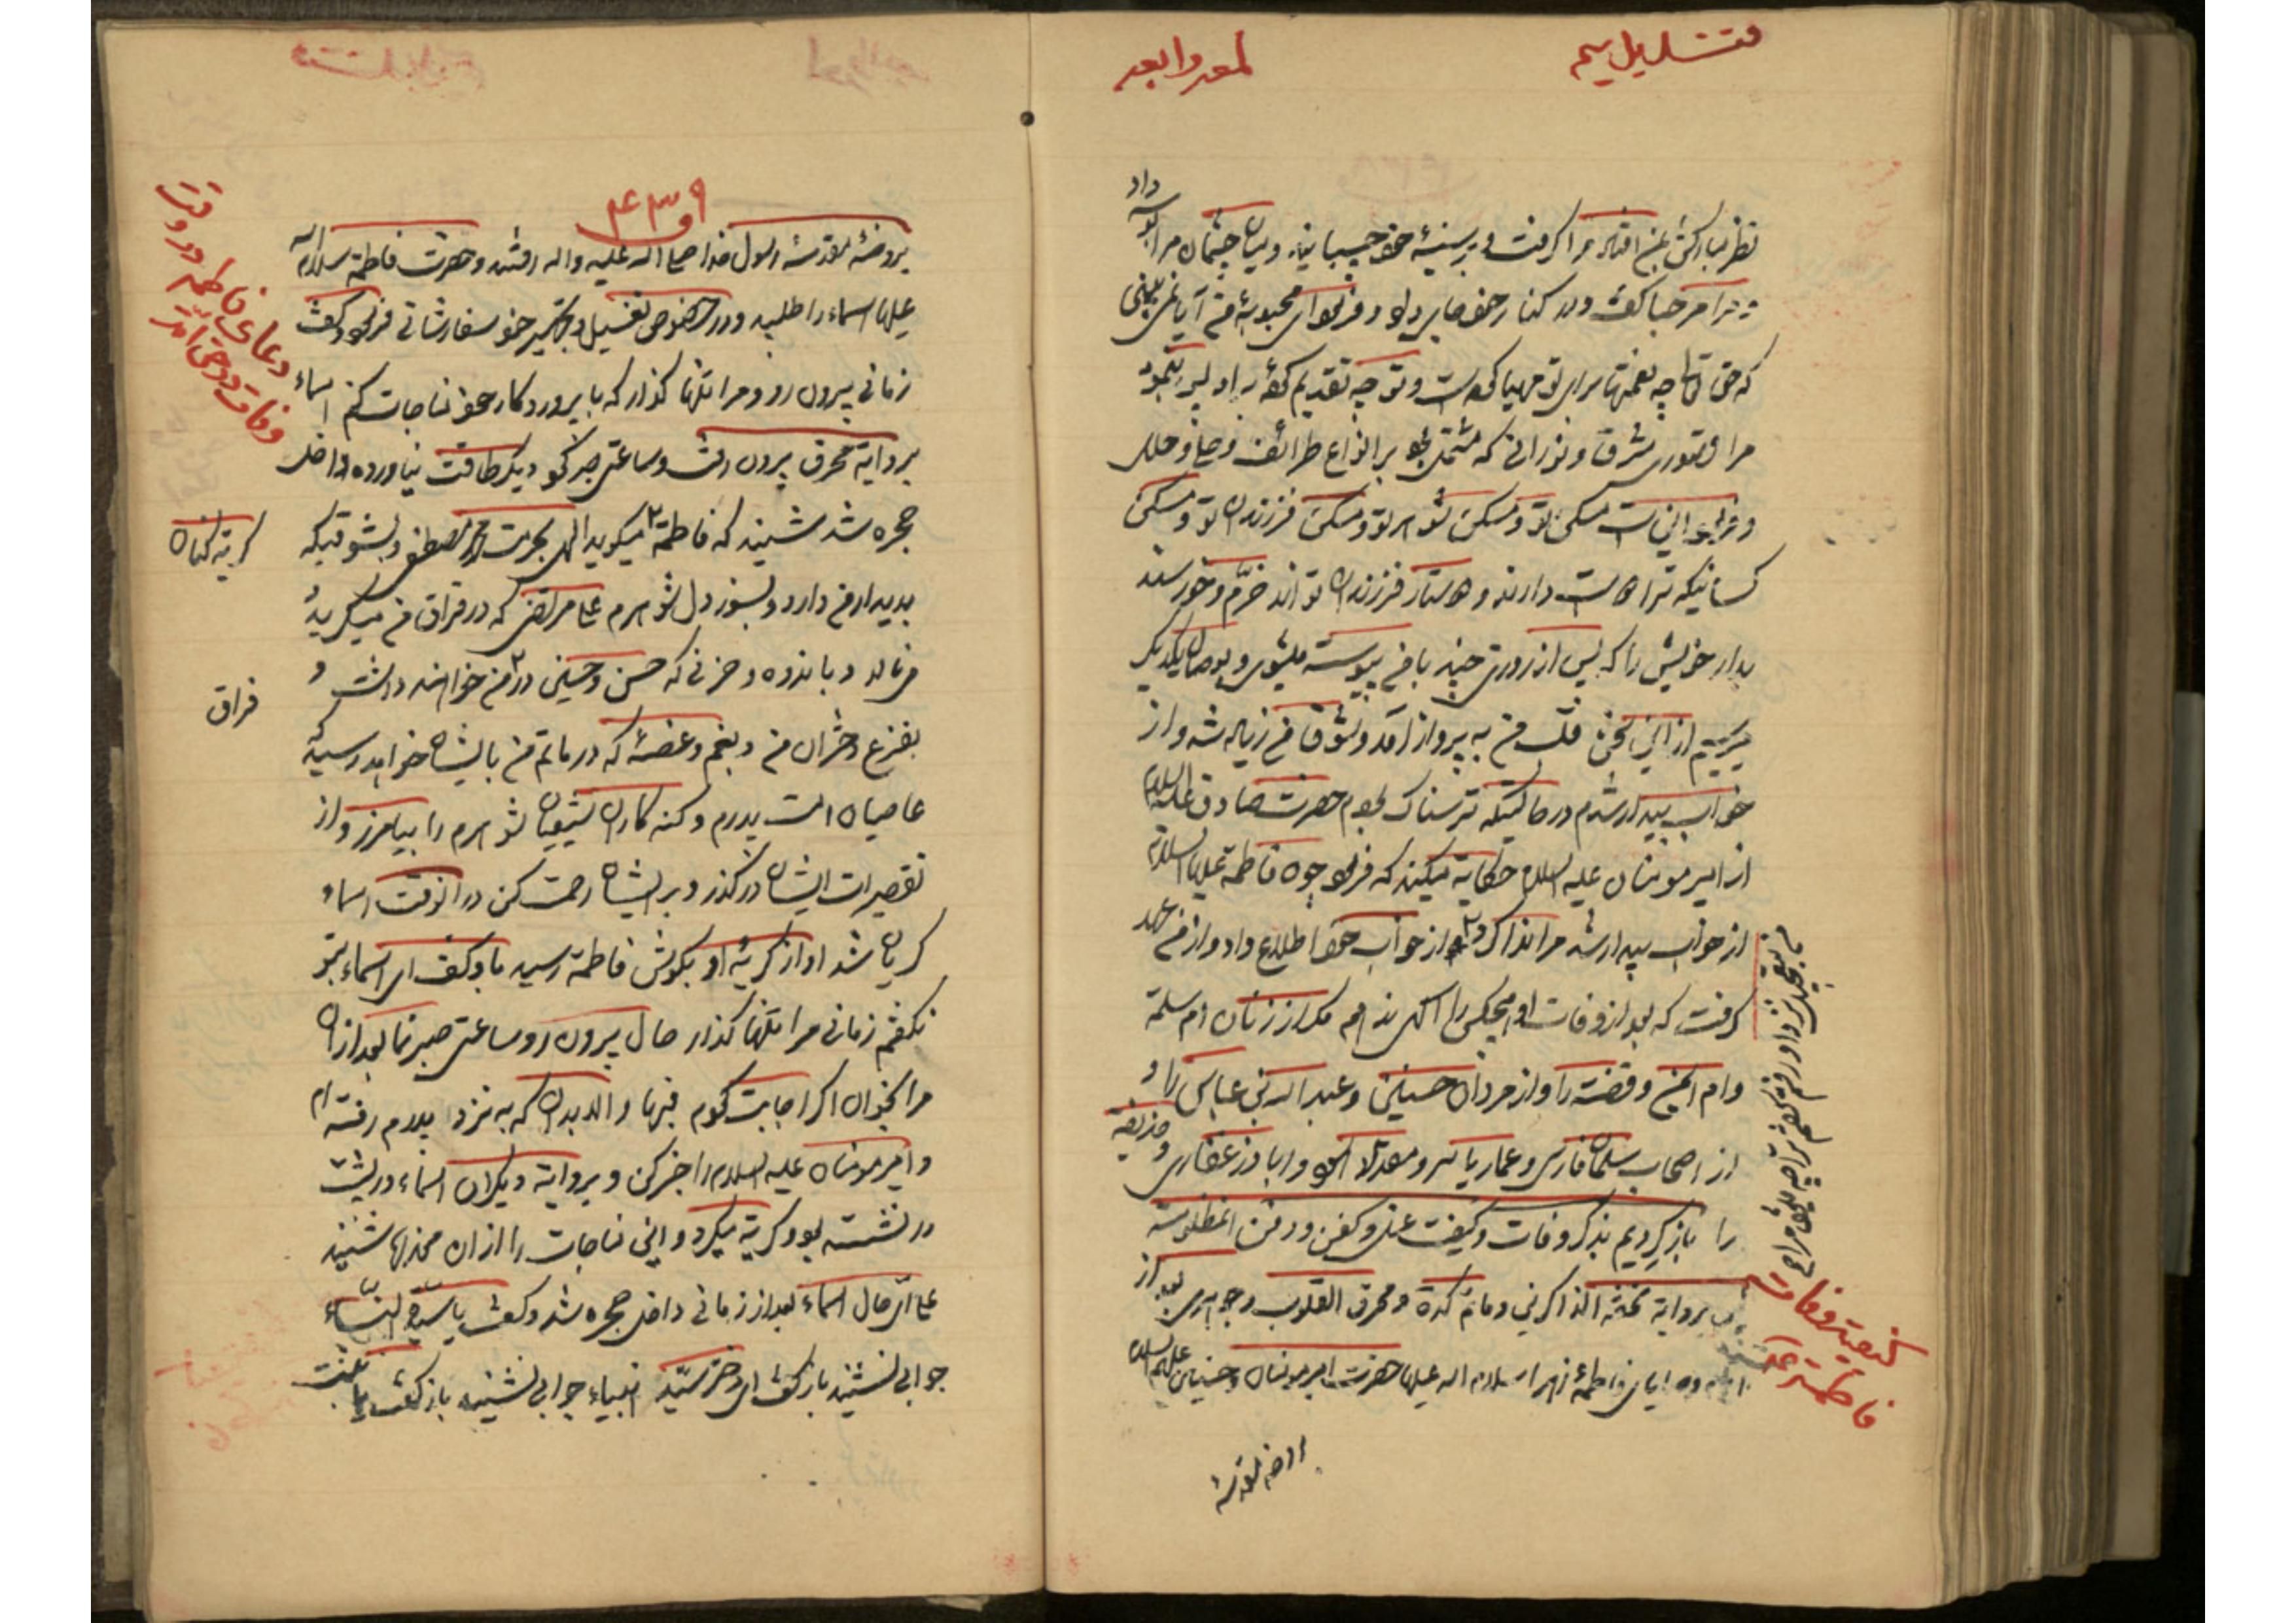 نظر مبارکش بمن افتاد مرا گرفت و بر سینهٔ خود چسبانید و میان چشمان مرا بوسه داد
مرا مرحبا گفت و در کنار خود جای داد و فرمود ای محبوبهٔ من آیا نمی بینی
که حق تعالی چه نعمتها برای تو مهیا کرده است و تو چه تقدیم کرده پس بنمود
مرا قصوری مشرق و نورانی که مشتمل بود بر انواع طرائف و حلی و حلل
و فرمود اینست مسکن تو و مسکن شوهر تو و مسکن فرزندان تو و مسکن
کسانیکه ترا دوست دارند و دوستدار فرزندان تو اند خرّم و خورسند
بدار خویش را که پس از روزی چند با من پیوسته میشوی و بوصال یکدیگر
میرسیم از این سخن قلب من به پرواز آمد و شوق من زیاده شد و از
خواب بیدار شدم در حالتیکه ترسناک بودم حضرت صادق علیه السلام
از امیر مومنان علیه السلام حکایة میکند که فرمود چون فاطمه علیها السلام
از خواب بیدار شد مرا ندا کرد و از خواب خود اطلاع داد و از من عهد
گرفت که بعد از وفات او هیچکس را آگهی ندهم مگر از زنان ام سلمة
و ام ایمن و فضة را و از مردان حسنین و عبد الله بن عباس را و
از اصحاب سلمان فارسی و عمار یاسر و مقداد اسود و اباذر غفاری و حذیفة
را باز گردیم بذکر وفات و کیفیت غسل و کفن و دفن انمظلومة
بروایة تحفة الذاکرین و ماتم کده و محرق القلوب و جواهری بعد از
فاطمهٔ زهرا سلام الله علیها حضرت امیر مومنان و حسنین علیهم السلام
کیفیة وفات
فاطمة
روضه مقدسهٔ
۴۳۹
بروضهٔ مقدسهٔ رسول خدا صلی الله علیه واله رفتند و حضرت فاطمة سلام الله
علیها اسماء را طلبید و در خصوص تغسیل و تکفیر خود سفارشاتی فرمود و گفت
زمانی بیرون رو و مرا تنها گذار که با پروردگار خود مناجات کنم اسماء
بروایة محرق بیرون رفت و ساعتی صبر کرد دیگر طاقت نیاورده داخل
حجره شد شنید که فاطمة میگوید الهی بحرمت محمد مصطفی و بشوقیکه
بدیدار من دارد و بسوز دل شوهرم علی مرتضی که در فراق من میگرید
مینالد و باندوه و حزنی که حسن و حسین در من خواهند داشت و
بفزع دختران من و بغم و غصهٔ که در ماتم من بایشان خواهد رسید که
عاصیان امت پدرم و گنه کاران شیعیان شوهرم را بیامرز و از
تقصیرات ایشان در گذر و بر ایشان رحمت کن در انوقت اسماء
گریان شد اواز گریهٔ او بگوش فاطمة رسید باو گفت ای اسماء بتو
نگفتم زمانی مرا تنها گذار حال بیرون رو و ساعتی صبر نما بعد از ان
مرا بخوان اگر اجابت کردم فبها و الا بدان که به نزد پدرم رفته ام
و امیر مومنان علیه السلام را خبر کن و بروایة دیگران اسماء در پشت
در نشسته بود و گریة میکرد و این مناجات را از ان مخدرها شنید
علی ایّ حال اسماء بعد از زمانی داخل حجره شد و گفت یا سیدة النساء
جوابی نشنید باز گفت ای دختر سیّد انبیاء جوابی نشنید باز گفت یا
دعای فاطمه در وقت
وفات در حق امة
گریه کنان
فراق